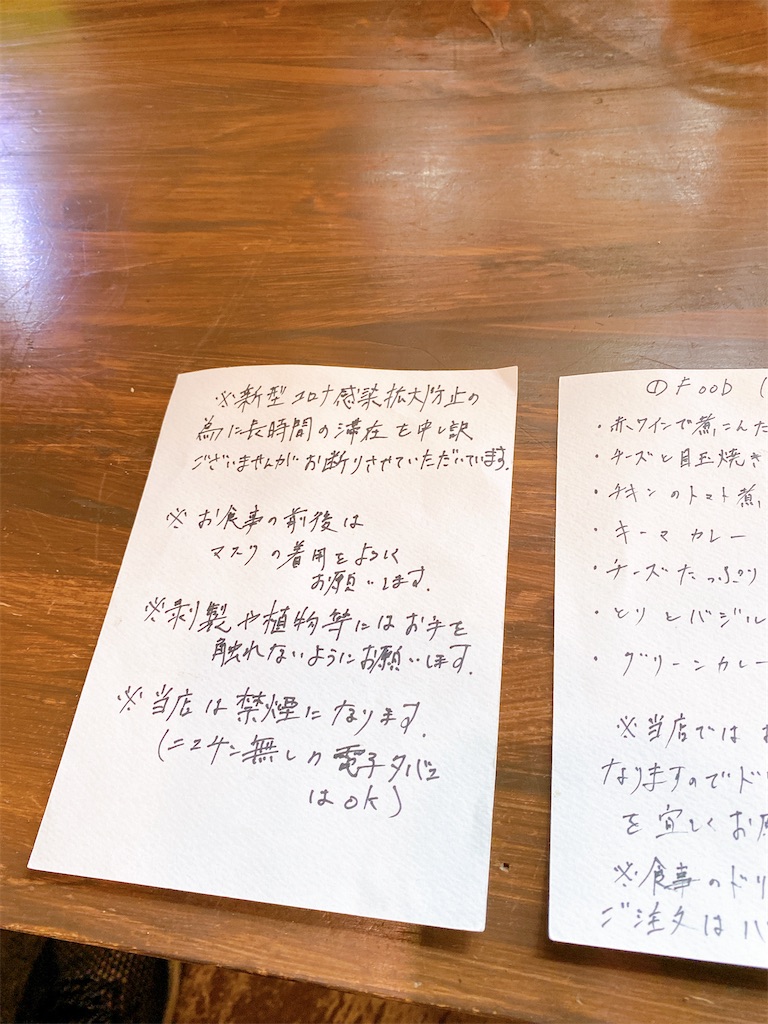 ※新型コロナ感染拡大防止の
為に長時間の滞在を申し訳
ございませんがお断りさせていただいています.
※お食事の前後は
マスクの着用をよろしく
お願いします.
※剥製や植物等にはお手を
触れないようにお願いします.
※当店は禁煙になります.
(ニコチン無しの電子タバコ
はOK)
①Food (
・赤ワインで煮こんだ
・チーズと目玉焼き
・チキンのトマト煮
・キーマカレー
・チーズたっぷり
・とりとバジル
・グリーンカレー
※当店では お
なりますのでド
を宜しくお願
※食事のドリ
ご注文はハ